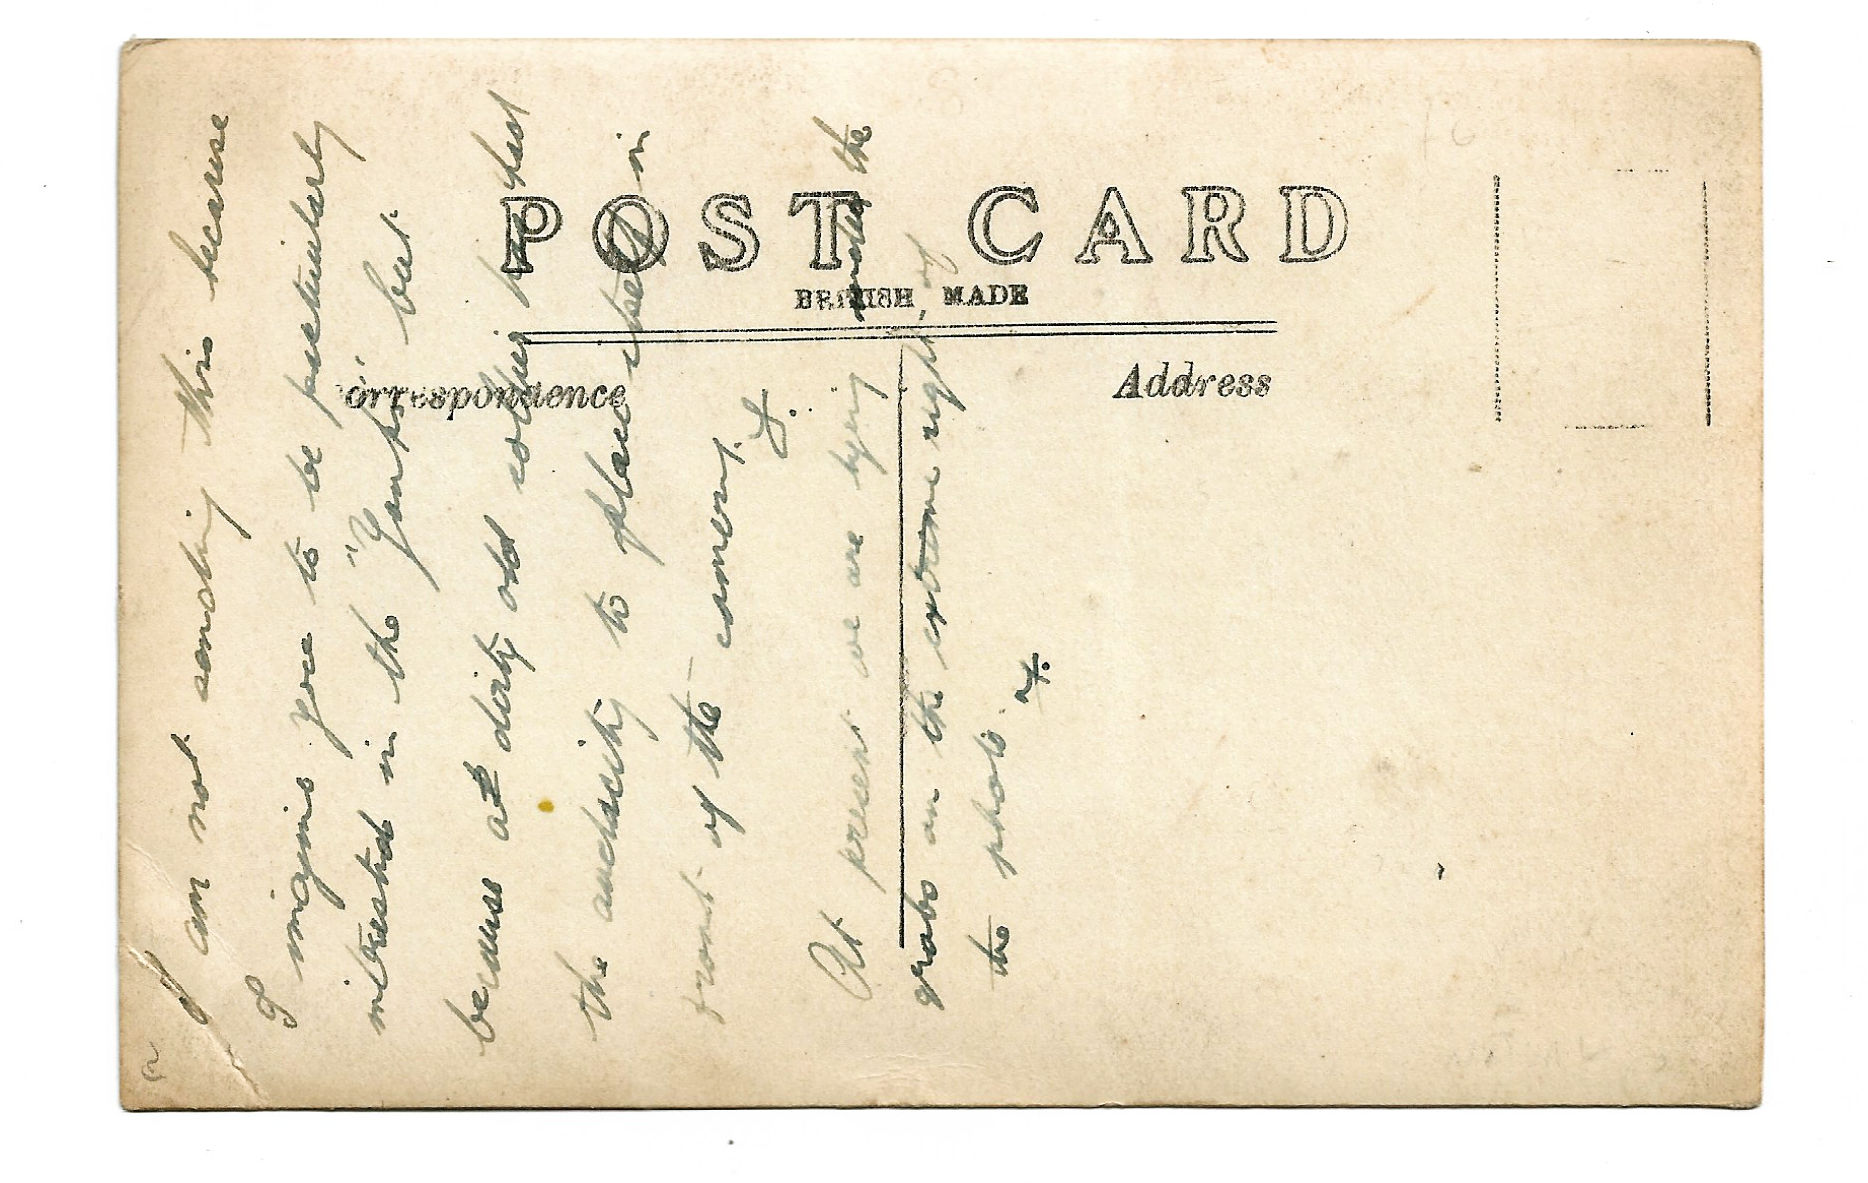 POST CARD
BRITISH MADE
Correspondence
Address
I am not sending this because
I imagine you to be particularly
intrested in the "Yanks" but
because at dirty old collier has had
the audacity to place itself in
front of the convoy.
At present we are lying under the
grabs on the extreme right of
the photo